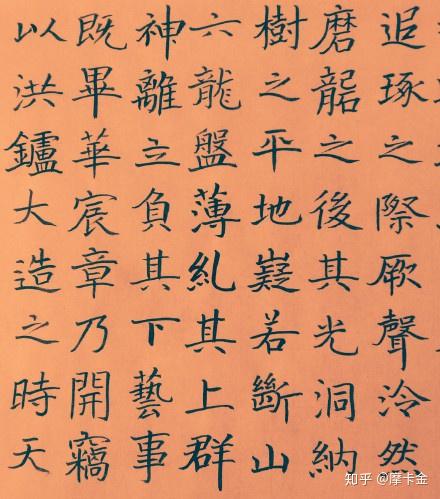 追琢之際厥聲泠然
磨礱之後其光洞納
樹之平地嶷若斷山
六龍盤薄糺其上群
神離立負其下藝事
既畢華宸章乃開竊
以洪鑪大造之時天
知乎 @摩卡金